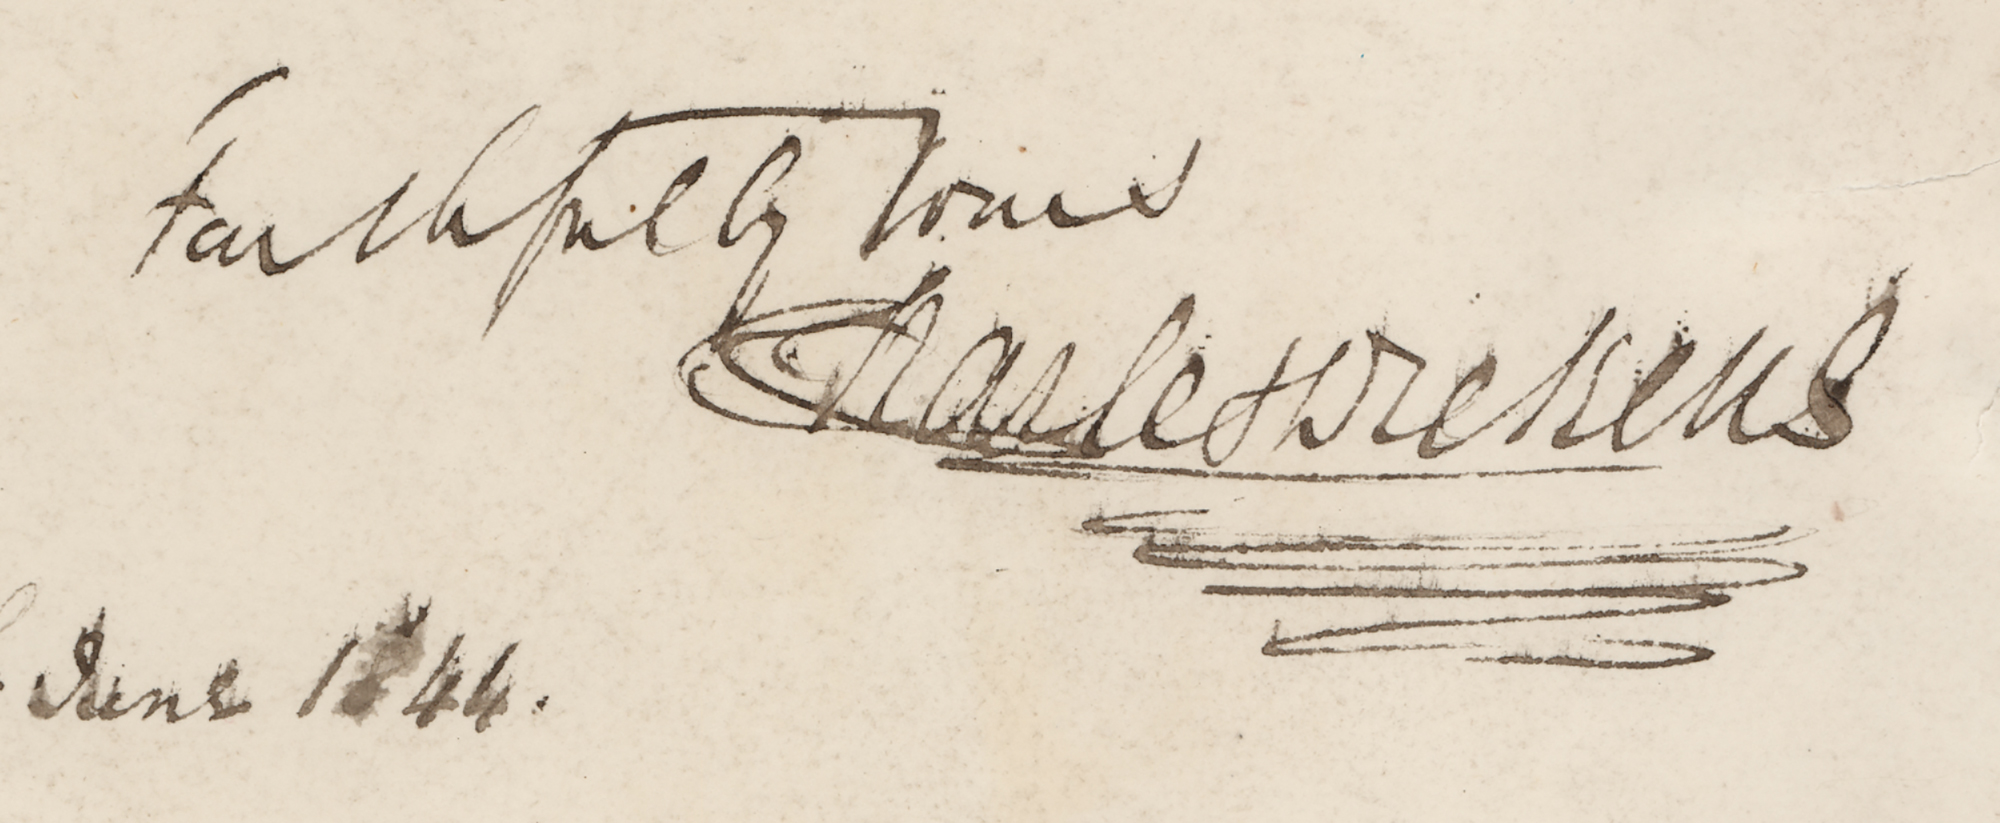 Faithfully Yours
Charles Dickens
June 1844.